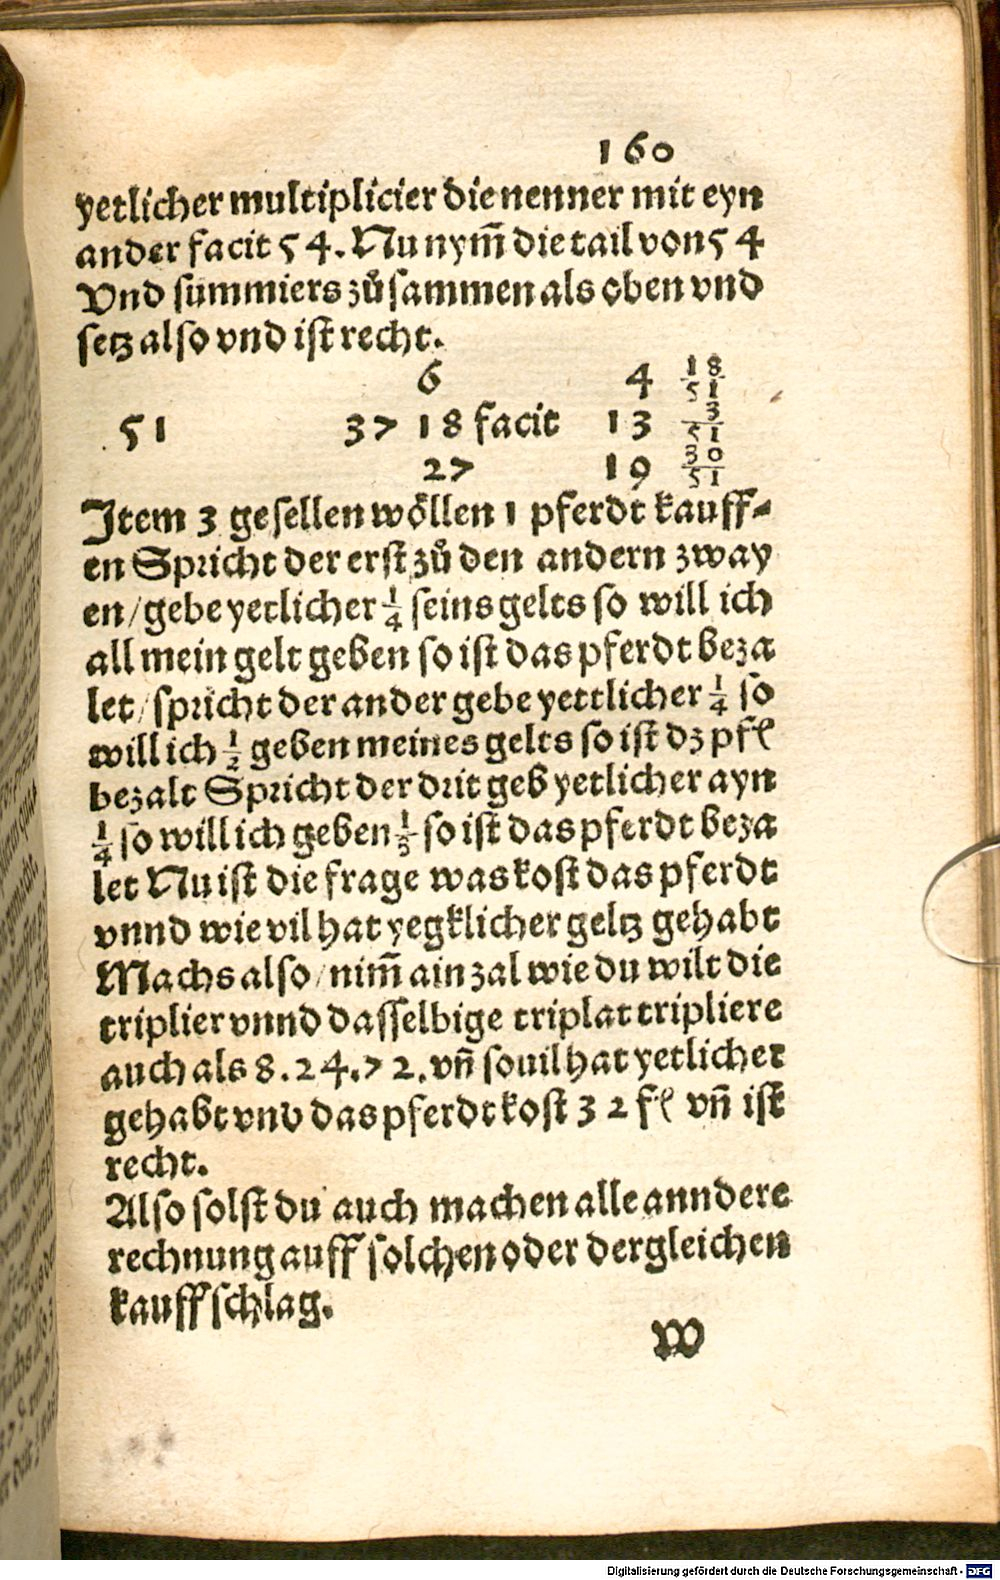 160
yetlicher multiplicier die nenner mit eyn
ander facit 54. Nu nym̃ die tail von 54
Vnd summiers zůsammen als oben vnd
setz also vnd ist recht.
6 4 18/51
51 37 18 facit 13 3/51
27 19 30/51
Item 3 gesellen wöllen 1 pferdt kauff-
en Spricht der erst zů den andern zway
en/gebe yetlicher 1/4 seins gelts so will ich
all mein gelt geben so ist das pferdt beza
let/spricht der ander gebe yettlicher 1/4 so
will ich 1/2 geben meines gelts so ist dz pfl
bezalt Spricht der drit geb yetlicher ayn
1/4 so will ich geben 1/3 so ist das pferdt beza
let Nu ist die frage was kost das pferdt
vnnd wie vil hat yegklicher geltz gehabt
Machs also/nim̃ ain zal wie du wilt die
triplier vnnd dasselbige triplat tripliere
auch als 8.24.72. vñ souil hat yetlicher
gehabt vnd das pferdt kost 32 fl vñ ist
recht.
Also solst du auch machen alle anndere
rechnung auff solchen oder dergleichen
kauffschlag.
W
Digitalisierung gefördert durch die Deutsche Forschungsgemeinschaft - DFG